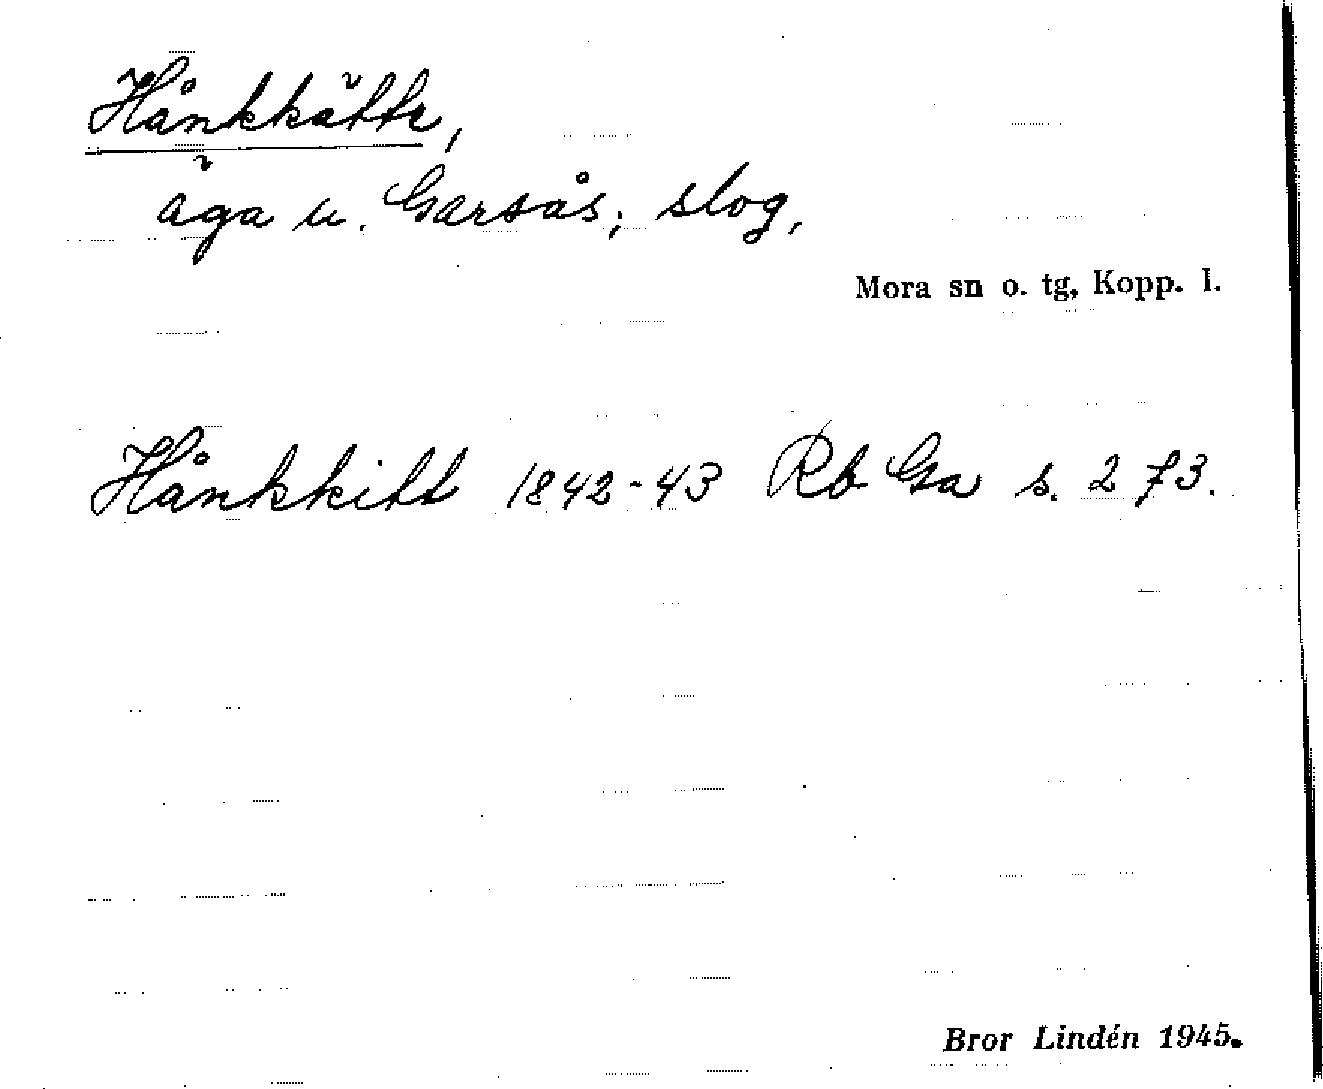 Hånkkätte,
äga u. Garsås; slog,
Mora sn o. tg, Kopp. l.
Hånkkitt 1842-43 Rb Ga s. 273.
Bror Lindén 1945.